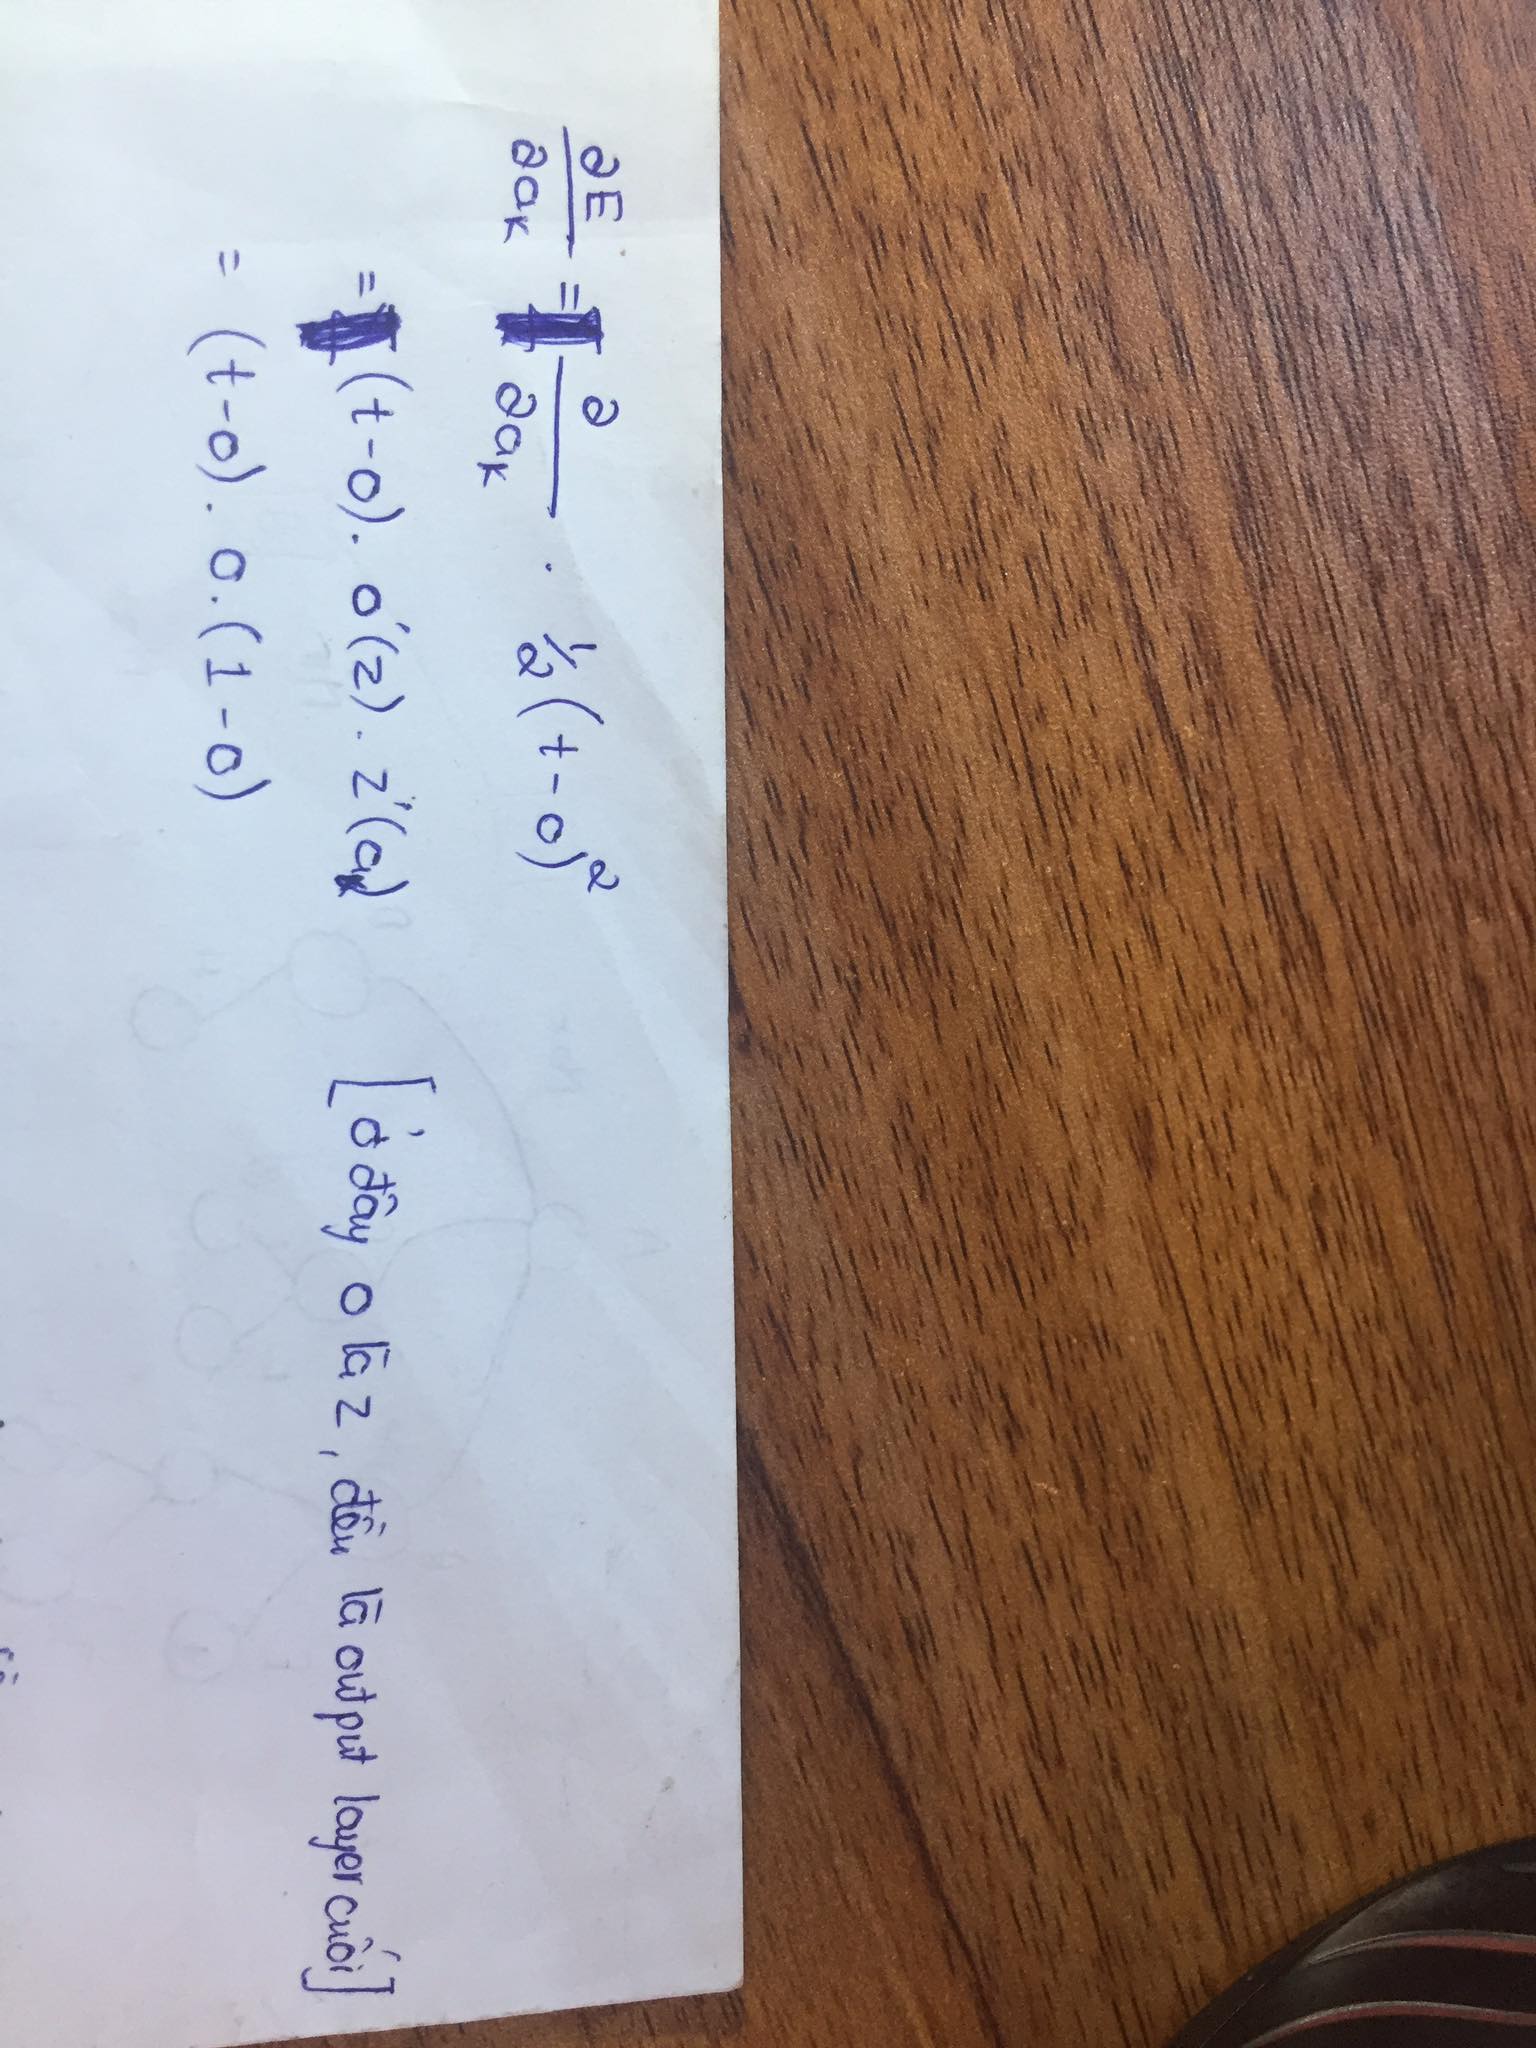 ∂E/∂aₖ = ∂/∂aₖ · 1/2 (t-o)²
= (t-o). o'(z). z'(aₖ) [ở đây o là z, đều là output layer cuối]
= (t-o). o.(1-o)